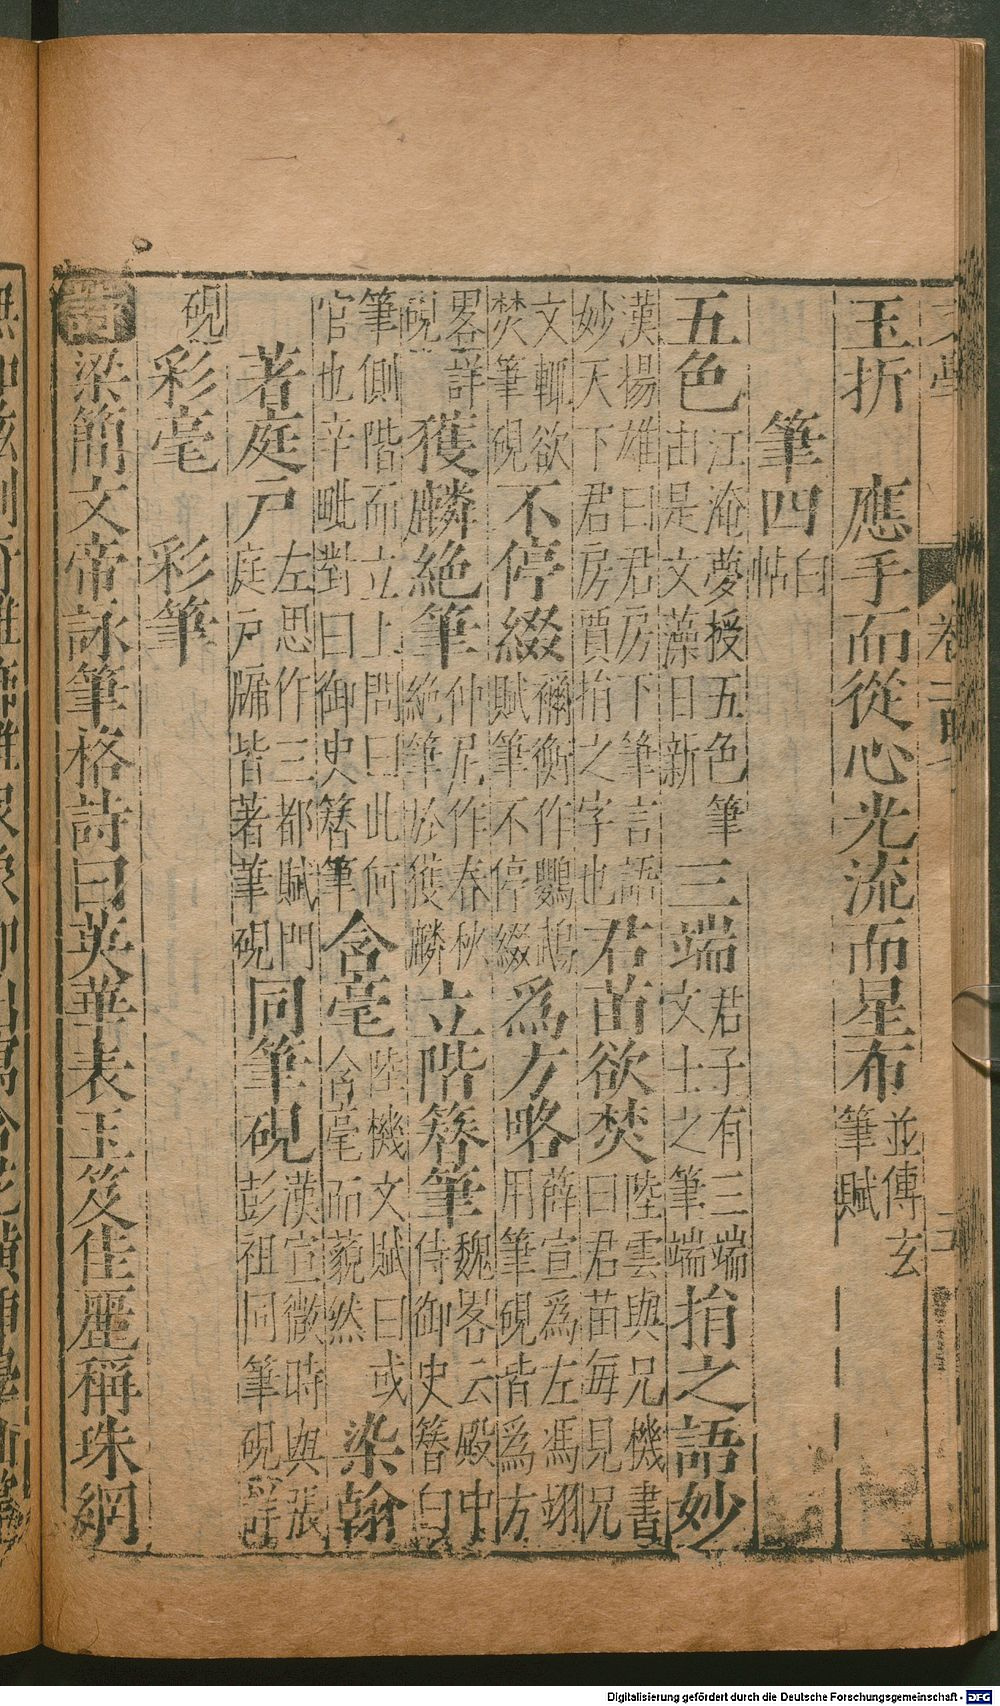 玉折　應手而從心光流而星布並傳玄筆賦
筆四白帖
五色江淹夢授五色筆由是文藻日新三端君子有三端文士之筆端捎之語妙
漢揚雄曰君房下筆言語妙天下君房賈捎之字也君苗欲焚陸雲與兄機書曰君苗每見兄
文輒欲焚筆硯不停綴禰衡作鸚鵡賦筆不停綴爲方略薛宣爲左馮翊用筆硯皆爲方
畧詳硯獲麟絕筆仲尼作春秋絕筆於獲麟立階簪筆魏畧云殿中侍御史簪白
筆側階而立上問曰此何官也辛毗對曰御史簪筆含毫陸機文賦曰或含毫而藐然染翰
著庭戶左思作三都賦門庭戶牖皆著筆硯同筆硯漢宣微時與張彭祖同筆硯詳
硯彩毫　彩筆
詩梁簡文帝詠筆格詩曰英華表玉笈佳麗稱珠網
Digitalisierung gefördert durch die Deutsche Forschungsgemeinschaft - DFG